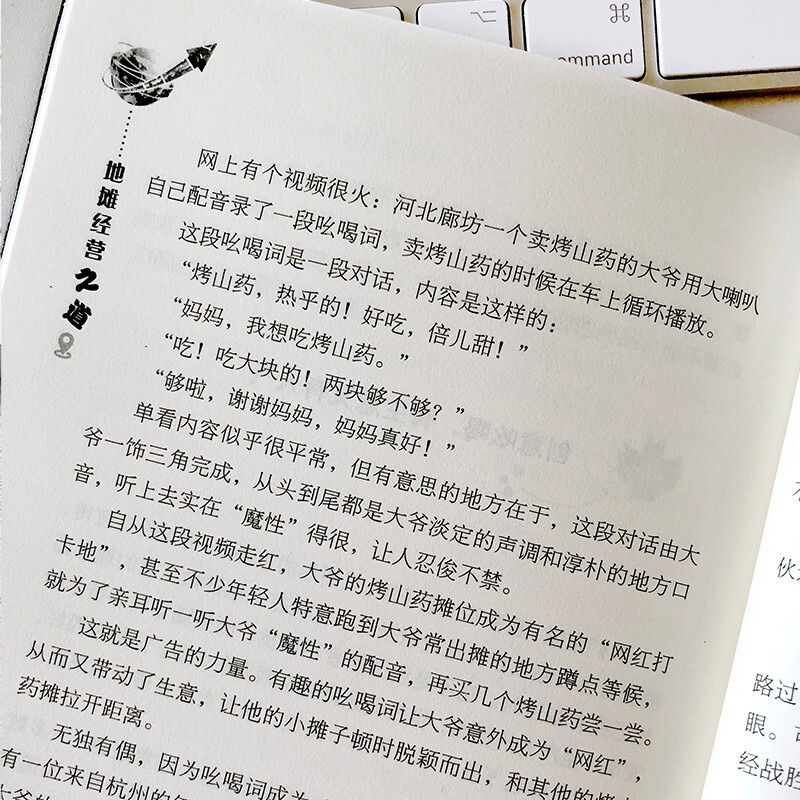 command
地摊经营之道
网上有个视频很火：河北廊坊一个卖烤山药的大爷用大喇叭
自己配音录了一段吆喝词，卖烤山药的时候在车上循环播放。
这段吆喝词是一段对话，内容是这样的：
“烤山药，热乎的！好吃，倍儿甜！”
“妈妈，我想吃烤山药。”
“吃！吃大块的！两块够不够？”
“够啦，谢谢妈妈，妈妈真好！”
单看内容似乎很平常，但有意思的地方在于，这段对话由大
爷一饰三角完成，从头到尾都是大爷淡定的声调和淳朴的地方口
音，听上去实在“魔性”得很，让人忍俊不禁。
自从这段视频走红，大爷的烤山药摊位成为有名的“网红打
卡地”，甚至不少年轻人特意跑到大爷常出摊的地方蹲点等候，
就为了亲耳听一听大爷“魔性”的配音，再买几个烤山药尝一尝。
这就是广告的力量。有趣的吆喝词让大爷意外成为“网红”，
从而又带动了生意，让他的小摊子顿时脱颖而出，和其他的烤山
药摊拉开距离。
无独有偶，因为吆喝词成为
有一位来自杭州的
伙
路过
眼。
经战胜